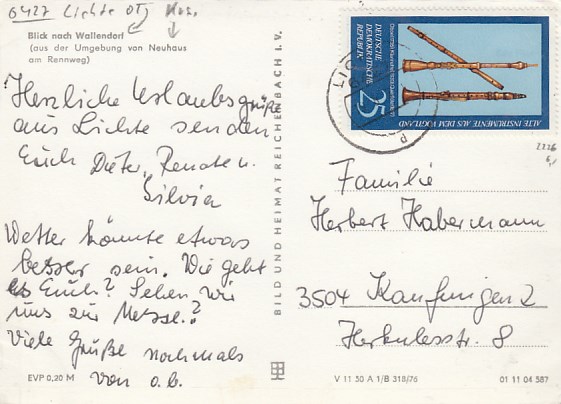 6427 Lichte OTJ Mos.
Blick nach Wallendorf
(aus der Umgebung von Neuhaus
am Rennweg)
Herzliche Urlaubsgrüße
aus Lichte senden
Euch Dieter, Renate u.
Silvia
Wetter könnte etwas
besser sein. Wie geht
es Euch? Sehen wir
uns zur Messe?
Viele Grüße nochmals
von o.b.
EVP 0,20 M
BILD UND HEIMAT REICHENBACH I. V.
DEUTSCHE
DEMOKRATISCHE
REPUBLIK
25
ALTE INSTRUMENTE AUS DEM VOGTLAND
2226
Familie
Herbert Habermann
3504 Kaufungen 2
Herkulesstr. 8
V 11 50 A 1/B 318/76
01 11 04 587